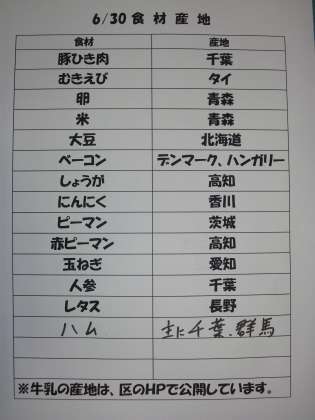 6/30 食材産地
食材 産地
豚ひき肉 千葉
むきえび タイ
卵 青森
米 青森
大豆 北海道
ベーコン デンマーク、ハンガリー
しょうが 高知
にんにく 香川
ピーマン 茨城
赤ピーマン 高知
玉ねぎ 愛知
人参 千葉
レタス 長野
ハム 主に千葉、群馬
※牛乳の産地は、区のHPで公開しています。